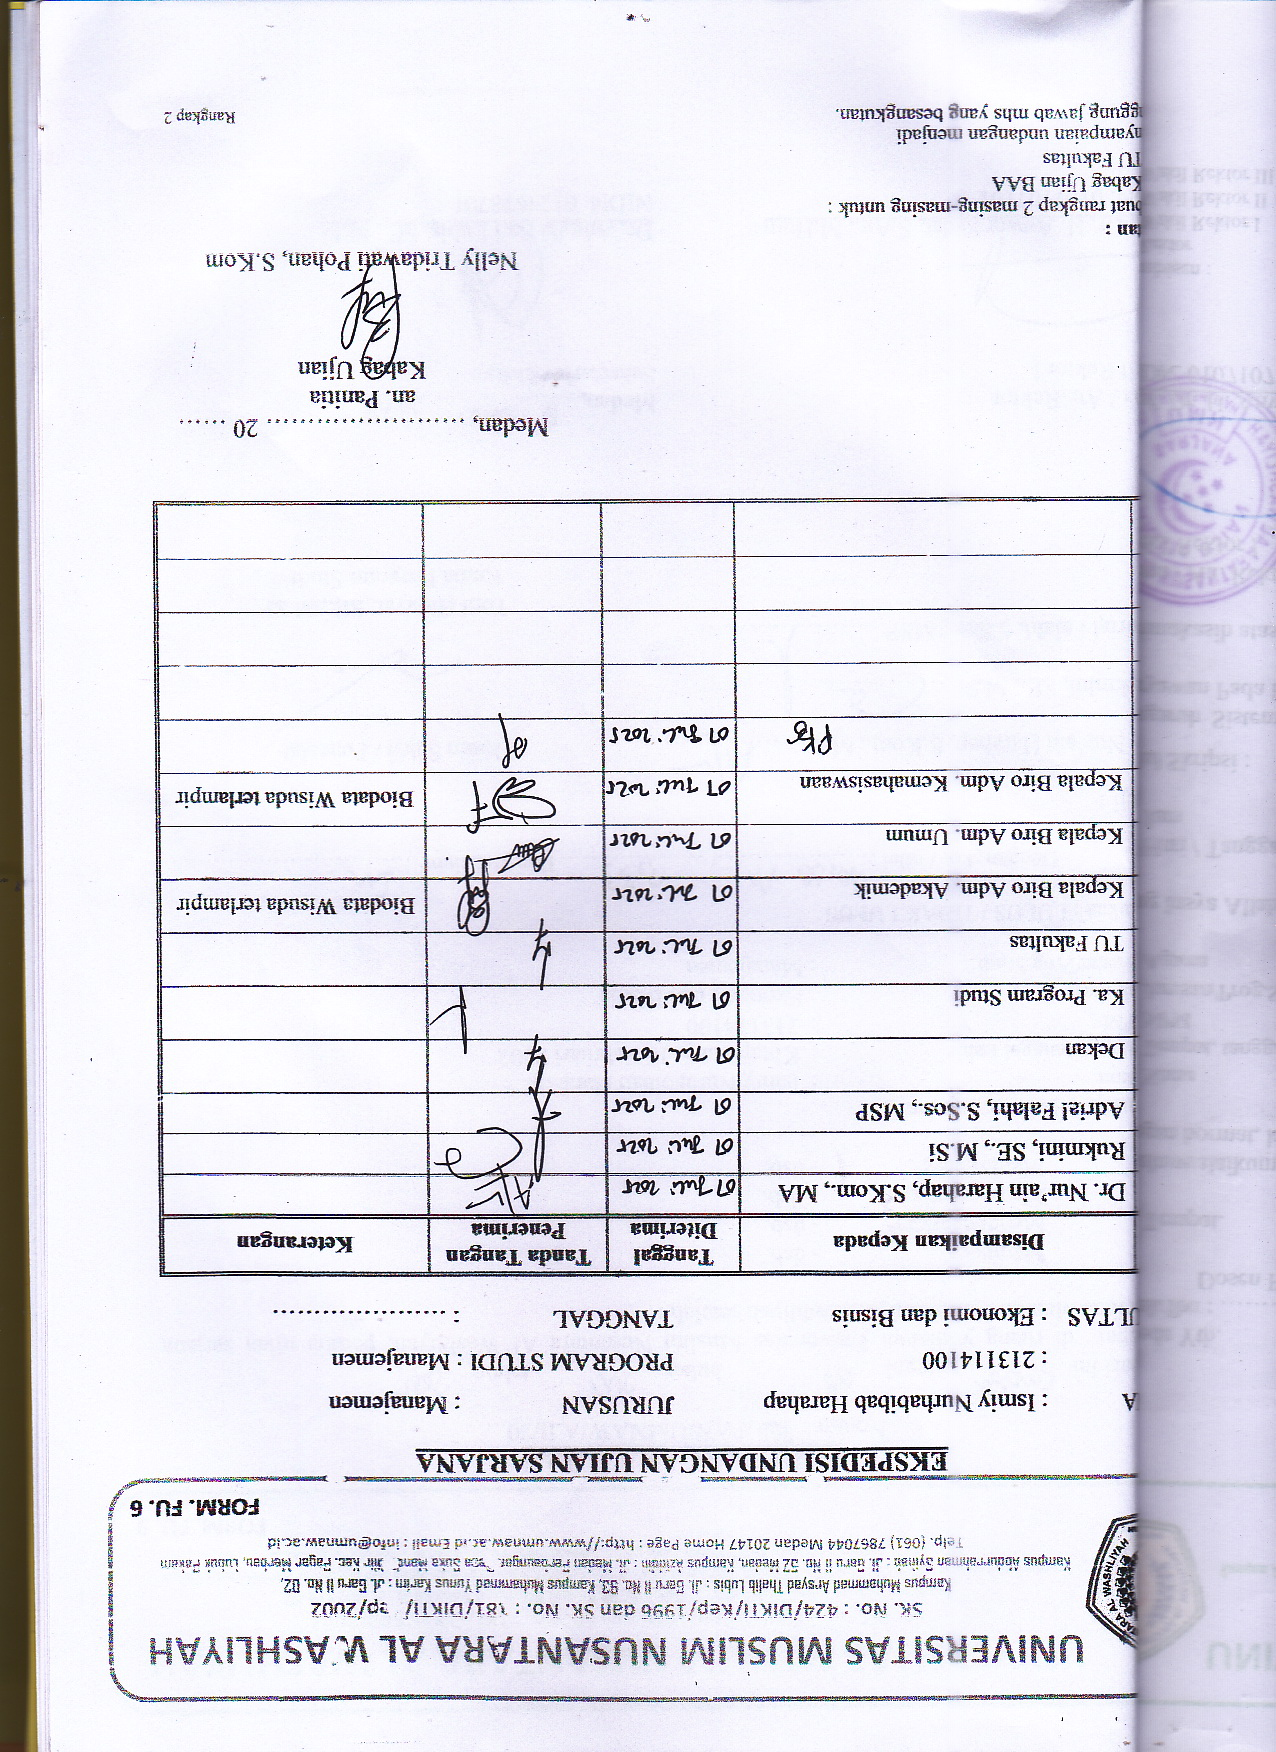 UNIVERSITAS MUSLIM NUSANTARA AL WASHLIYAH
SK. No. : 424/DIKTI/Kep/1996 dan SK. No. : 181/DIKTI/ ep/2002
Kampus Muhammad Arsyad Thalib Lubis : Jl. Garu II No. 93, Kampus Muhammad Yunus Karim : Jl. Garu II No. 02,
Kampus Abdurrahman Syihab : Jl. Garu II No. 52 Medan, Kampus Aziddin : Jl. Medan Perbaungan Desa Suka Mandi Hilir Kec. Pagar Merbau, Lubuk Pakam
Telp. (061) 7867044 Medan 20147 Home Page : http://www.umnaw.ac.id Email : info@umnaw.ac.id
FORM. FU. 6
EKSPEDISI UNDANGAN UJIAN SARJANA
A : Ismiy Nurhabibah Harahap JURUSAN : Manajemen
: 213114100 PROGRAM STUDI : Manajemen
ULTAS : Ekonomi dan Bisnis TANGGAL : .....................
Disampaikan Kepada Tanggal Diterima Tanda Tangan Penerima Keterangan
Dr. Nur'ain Harahap, S.Kom., MA 01 Juli 2025
Rukmini, SE., M.Si 01 Juli 2025
Adrial Falahi, S.Sos., MSP 01 Juli 2025
Dekan 01 Juli 2025
Ka. Program Studi 01 Juli 2025
TU Fakultas 01 Juli 2025
Kepala Biro Adm. Akademik 01 Juli 2025 Biodata Wisuda terlampir
Kepala Biro Adm. Umum 01 Juli 2025
Kepala Biro Adm. Kemahasiswaan 01 Juli 2025 Biodata Wisuda terlampir
01 Juli 2025
Medan, ........................ 20 ......
an. Panitia
Kabag Ujian
Nelly Tridawati Pohan, S.Kom
tan :
buat rangkap 2 masing-masing untuk :
Kabag Ujian BAA
TU Fakultas
nyampaian undangan menjadi
ggung jawab mhs yang besangkutan.
Rangkap 2